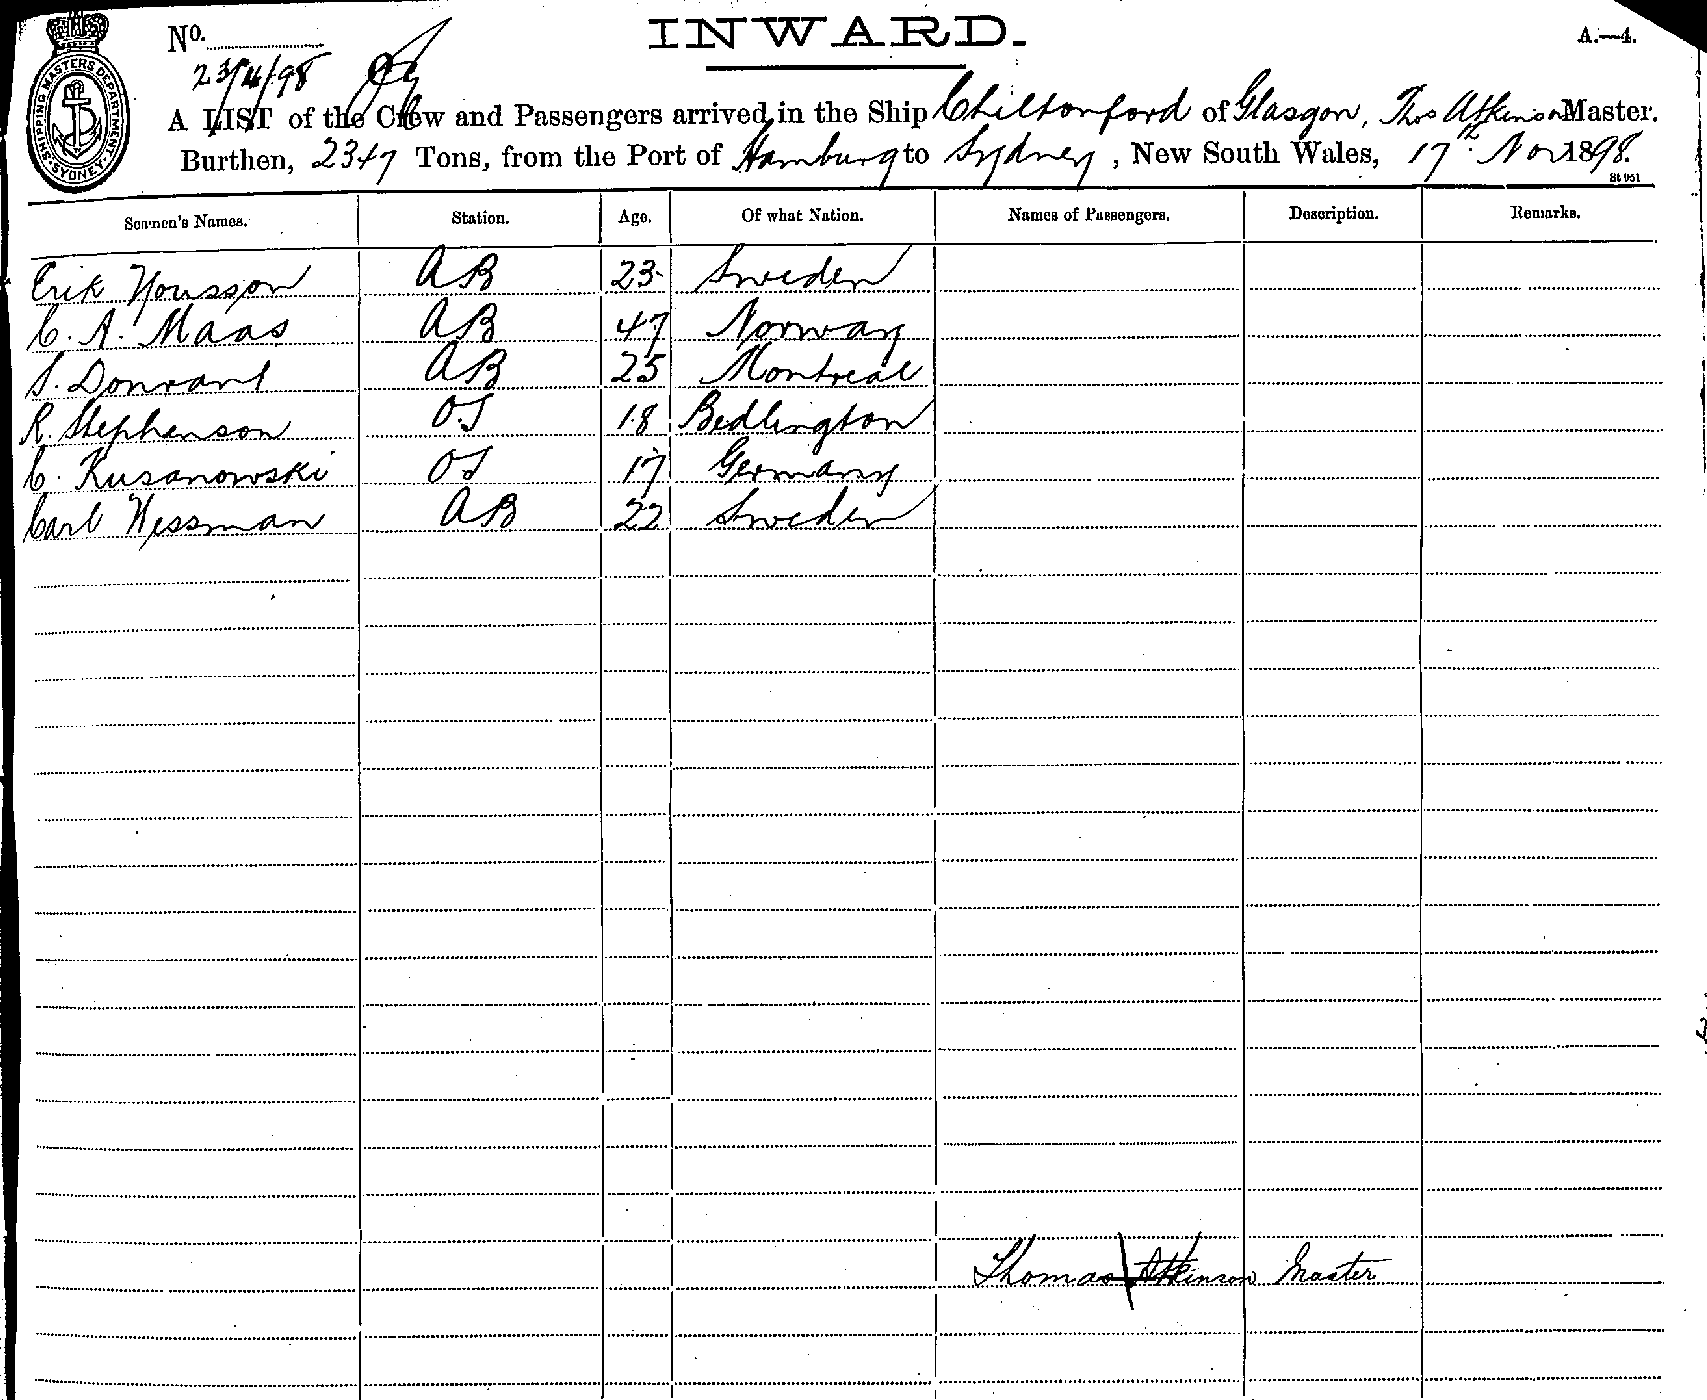 INWARD.
No.
A.—4.
23/11/98
SHIPPING MASTERS DEPARTMENT SYDNEY
A LIST of the Crew and Passengers arrived in the Ship Chiltonford of Glasgow, Thos Atkinson Master.
Burthen, 2347 Tons, from the Port of Hamburg to Sydney, New South Wales, 17th Nov 1898.
St 951
Seamen's Names. Station. Age. Of what Nation. Names of Passengers. Description. Remarks.
Erik AB 23 Sweden
C. A. Maas AB 47 Norway
AB 25 Montreal
R. Stephenson OS 18 Bedlington
C. Kusanowski OS 17 Germany
Carl Wessman AB 22 Sweden
Thomas Atkinson Master